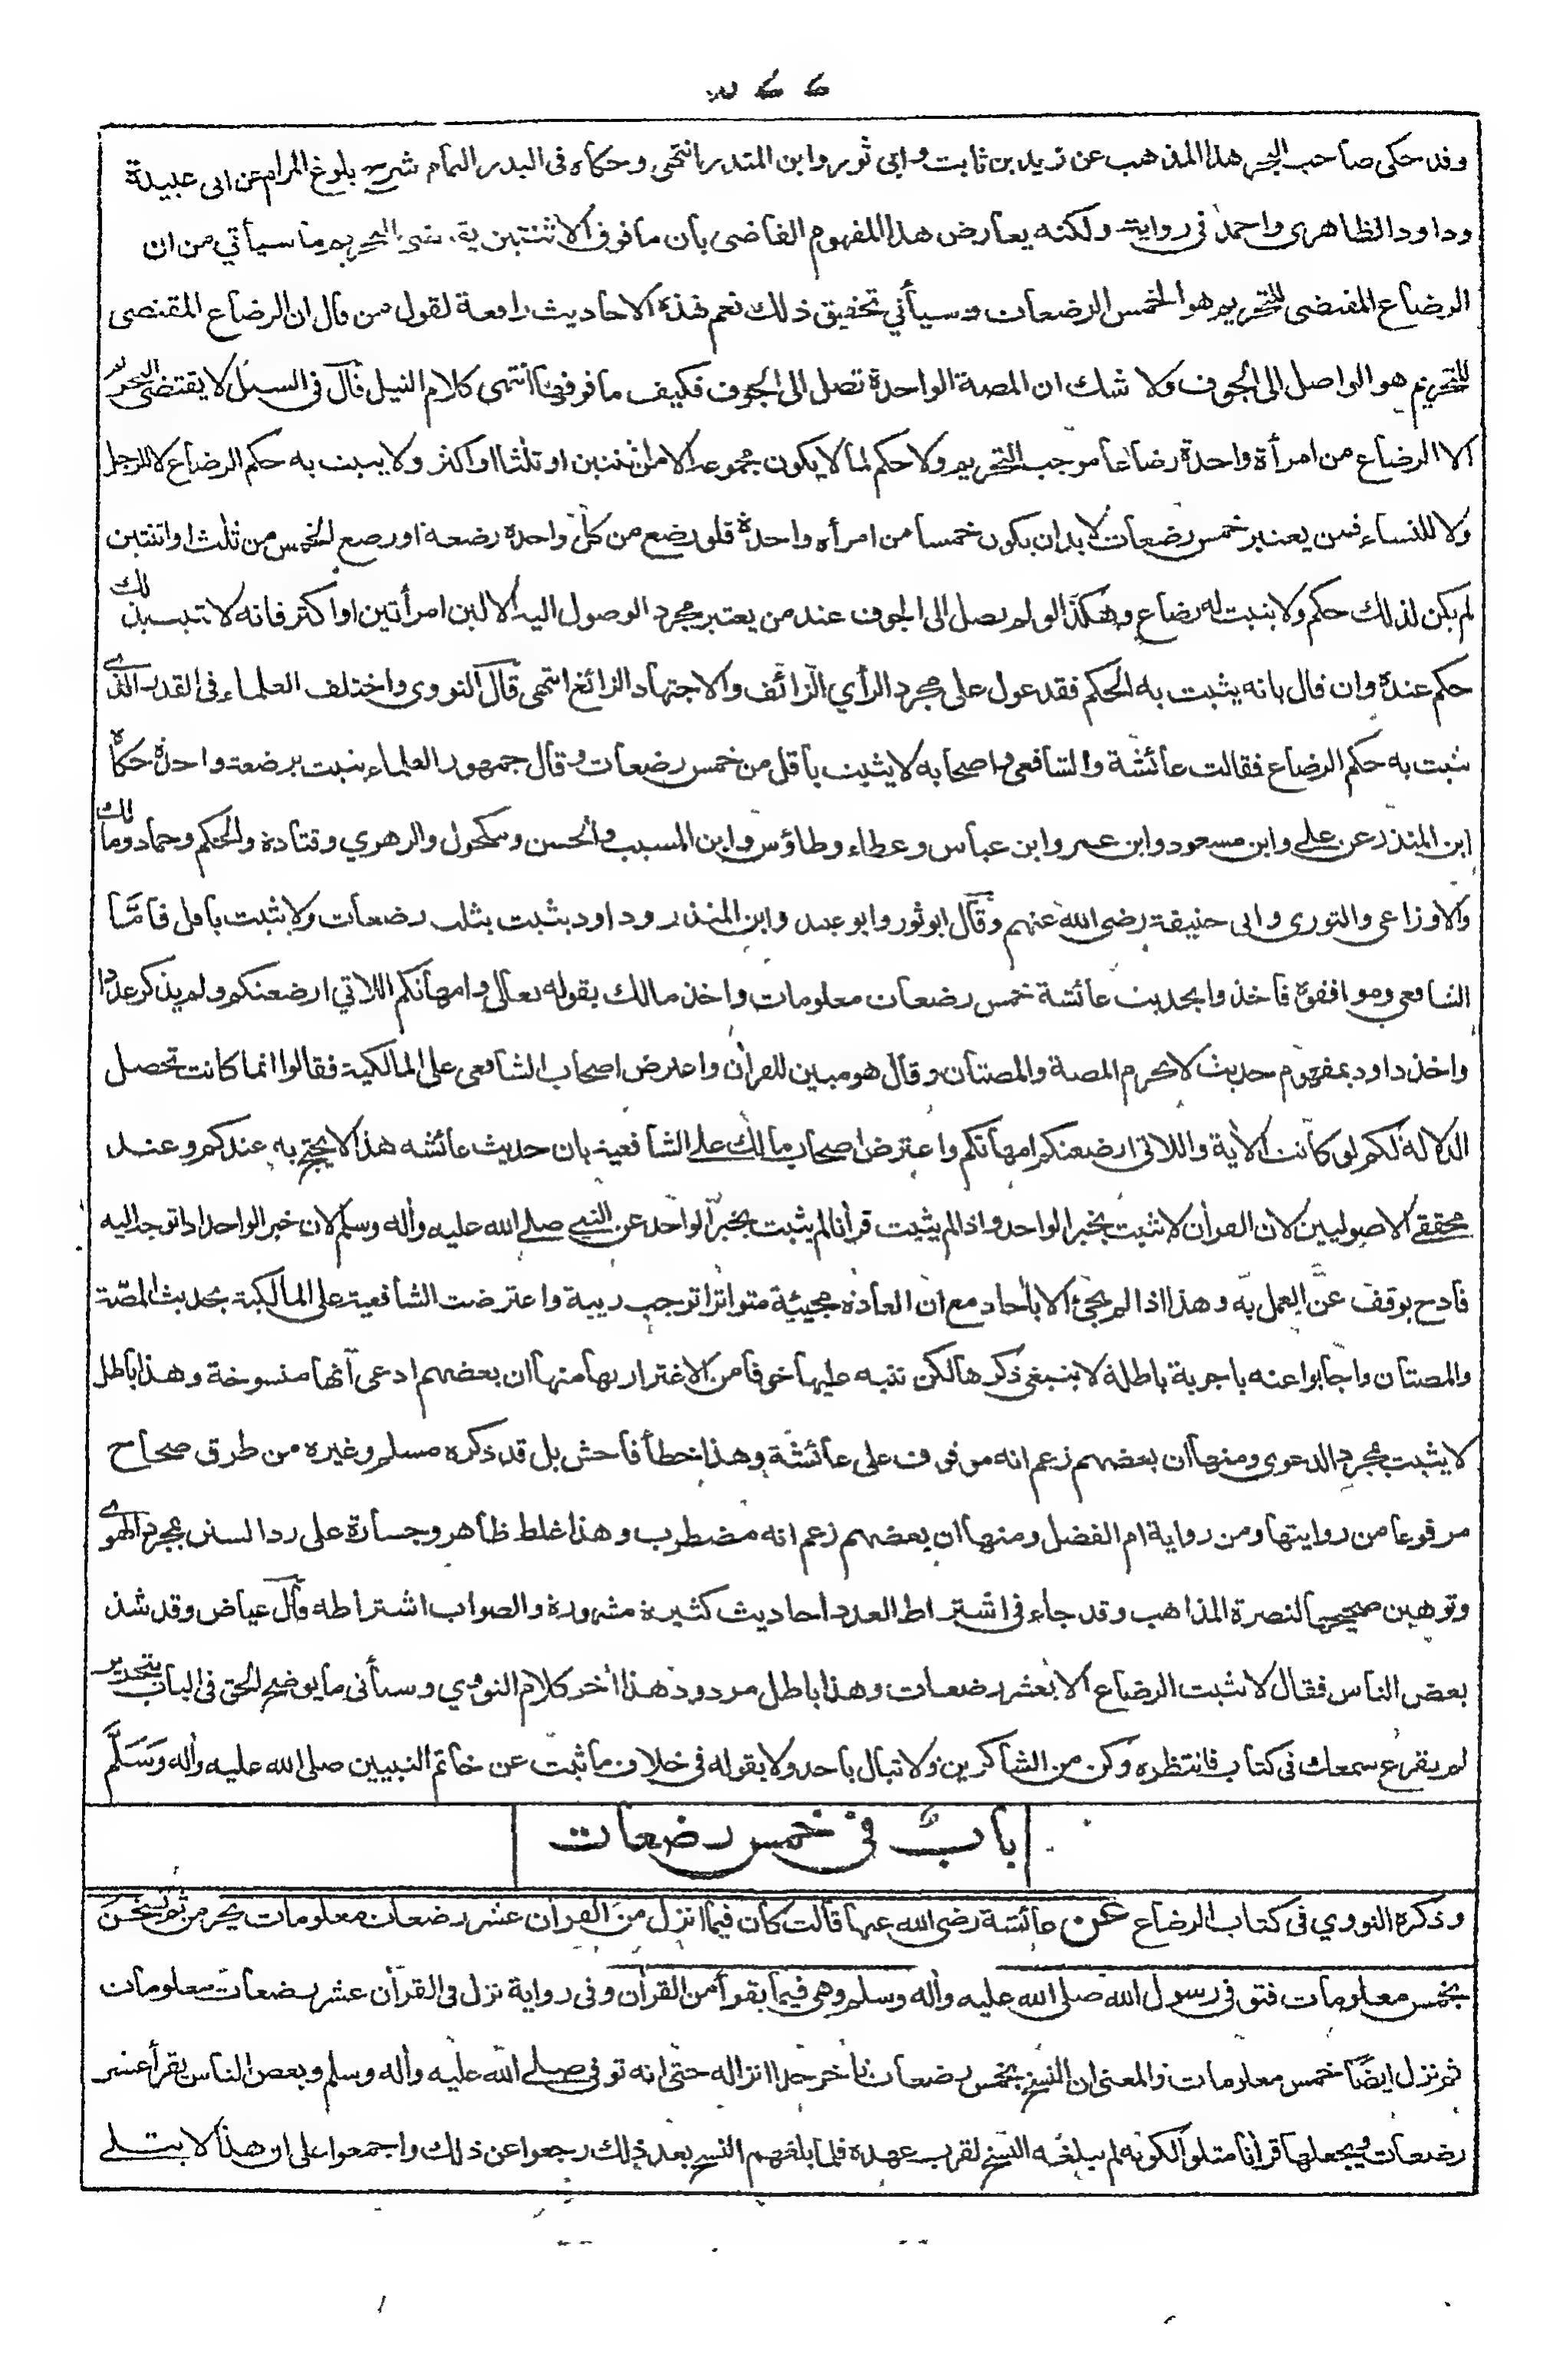 ٦٦٣
وقد حكى صاحب البحر هذا المذهب عن زيد بن ثابت وابي ثور وابن المنذر انتهى وحكاه في البدر التمام شرح بلوغ المرام عن ابى عبيدة
وداود الظاهرى واحمد في رواية ولكنه يعارض هذا المفهوم القاضى بأن ما فوق الاثنتين يقتضى التحريم ما سيأتي من ان
الرضاع المقتضى للتحريم هو الخمس الرضعات وسيأتي تحقيق ذلك نعم هذه الاحاديث دافعة لقول من قال ان الرضاع المقتضى
للتحريم هو الواصل الى الجوف ولا شك ان المصة الواحدة تصل الى الجوف فكيف ما فوقها انتهى كلام النيل قال في السيل لا يقتضى التحريم
الا الرضاع من امرأة واحدة رضاعا موجب التحريم ولا حكم لما لا يكون مجموعه الا من ثنتين او ثلثا او اكثر ولا يثبت به حكم الرضاع لا للرجل
ولا للنساء فمن يعتبر خمس رضعات لا بد ان يكون خمسا من امرأه واحدة فلو رضع من كل واحدة رضعة او رضع الخمس من ثلث او اثنتين
لم يكن لذلك حكم ولا يثبت له رضاع وهكذا لو لم يصل الى الجوف عند من يعتبر مجرد الوصول اليه الا لبن امرأتين او اكثر فانه لا يثبت بذلك
حكم عنده وان قال بانه يثبت به الحكم فقد عول على مجرد الرأي الزائف والاجتهاد الزائغ انتهى قال النووى واختلف العلماء في القدر الذي
يثبت به حكم الرضاع فقالت عائشة والشافعى واصحابه لا يثبت بأقل من خمس رضعات وقال جمهور العلماء يثبت برضعة واحدة حكاه
ابن المنذر عن علي وابن مسعود وابن عمر وابن عباس وعطاء وطاؤس وابن المسيب والحسن ومكحول والزهري وقتادة والحكم وحماد ومالك
والاوزاعى والثورى وابى حنيفة رضي الله عنهم وقال ابو ثور وابو عبيد وابن المنذر وداود يثبت بثلث رضعات ولا يثبت باقل فاما
الشافعي وموافقوه فاخذوا بحديث عائشة خمس رضعات معلومات واخذ مالك بقوله تعالى وامهاتكم اللاتي ارضعنكم ولم يذكر عددا
واخذ داود بمفهوم حديث لا تحرم المصة والمصتان وقال هو مبين للقرأن واعترض اصحاب الشافعى على المالكية فقالوا انما كانت تحصل
الدلالة لكم لو كانت الأية واللاتي ارضعنكم امهاتكم واعترض اصحاب مالك على الشافعية بان حديث عائشه هذا لا يحتج به عندكم وعند
محققي الاصوليين لان القرأن لا يثبت بخبر الواحد واذا لم يثبت قرأنا لم يثبت بخبر الواحد عن النبي صلى الله عليه وأله وسلم لان خبر الواحد اذا توجه اليه
قادح يوقف عن العمل به وهذا اذا لم يجئ الا بأحاد مع ان العادة مجيئة متواترا توجب ريبة واعترضت الشافعية على المالكية بحديث المصّة
والمصتان واجابوا عنه باجوبة باطلة لا ينبغي ذكرها لكن ننبه عليها خوفا من الاغترار بها منها ان بعضهم ادعى أنها منسوخة وهذا باطل
لا يثبت بمجرد الدعوى ومنها ان بعضهم زعم انه موقوف على عائشة وهذا خطأ فاحش بل قد ذكره مسلم وغيره من طرق صحاح
مرفوعا من روايتها ومن رواية ام الفضل ومنها ان بعضهم زعم انه مضطرب وهذا غلط ظاهر وجسارة على رد السنن بمجرد الهوى
وتوهين صحيحها لنصرة المذاهب وقد جاء في اشتراط العدد احاديث كثيرة مشهورة والصواب اشتراطه قال عياض وقد شذ
بعض الناس فقال لا يثبت الرضاع الا بعشر رضعات وهذا باطل مردود هذا أخر كلام النووي وسيأتى ما يوضح الحق في الباب بتحرير
لم يقرع سمعك في كتاب فانتظره وكن من الشاكرين ولا تبال بأحد ولا بقوله في خلاف ما ثبت عن خاتم النبيين صلى الله عليه وأله وَسَلَّم
بابٌ في خمس رضعات
وذكره النووي في كتاب الرضاع عن عائشة رضي الله عنها قالت كان فيما انزل من القرأن عشر رضعات معلومات يحرمن ثم نسخن
بخمس معلومات فتوفى رسول الله صلى الله عليه وأله وسلم وهي فيما يقرأ من القرأن وفى رواية نزل في القرأن عشر رضعات معلومات
ثم نزل ايضًا خمس معلومات والمعنى ان النسخ بخمس رضعات تأخر جدا انزاله حتى انه توفى صلى الله عليه وأله وسلم وبعض الناس يقرأ عشر
رضعات ويجعلها قرأنا متلوا لكونه لم يبلغه النسخ لقرب عهده فلما بلغهم النسخ بعد ذلك رجعوا عن ذلك واجمعوا على ان هذا لا يتلى